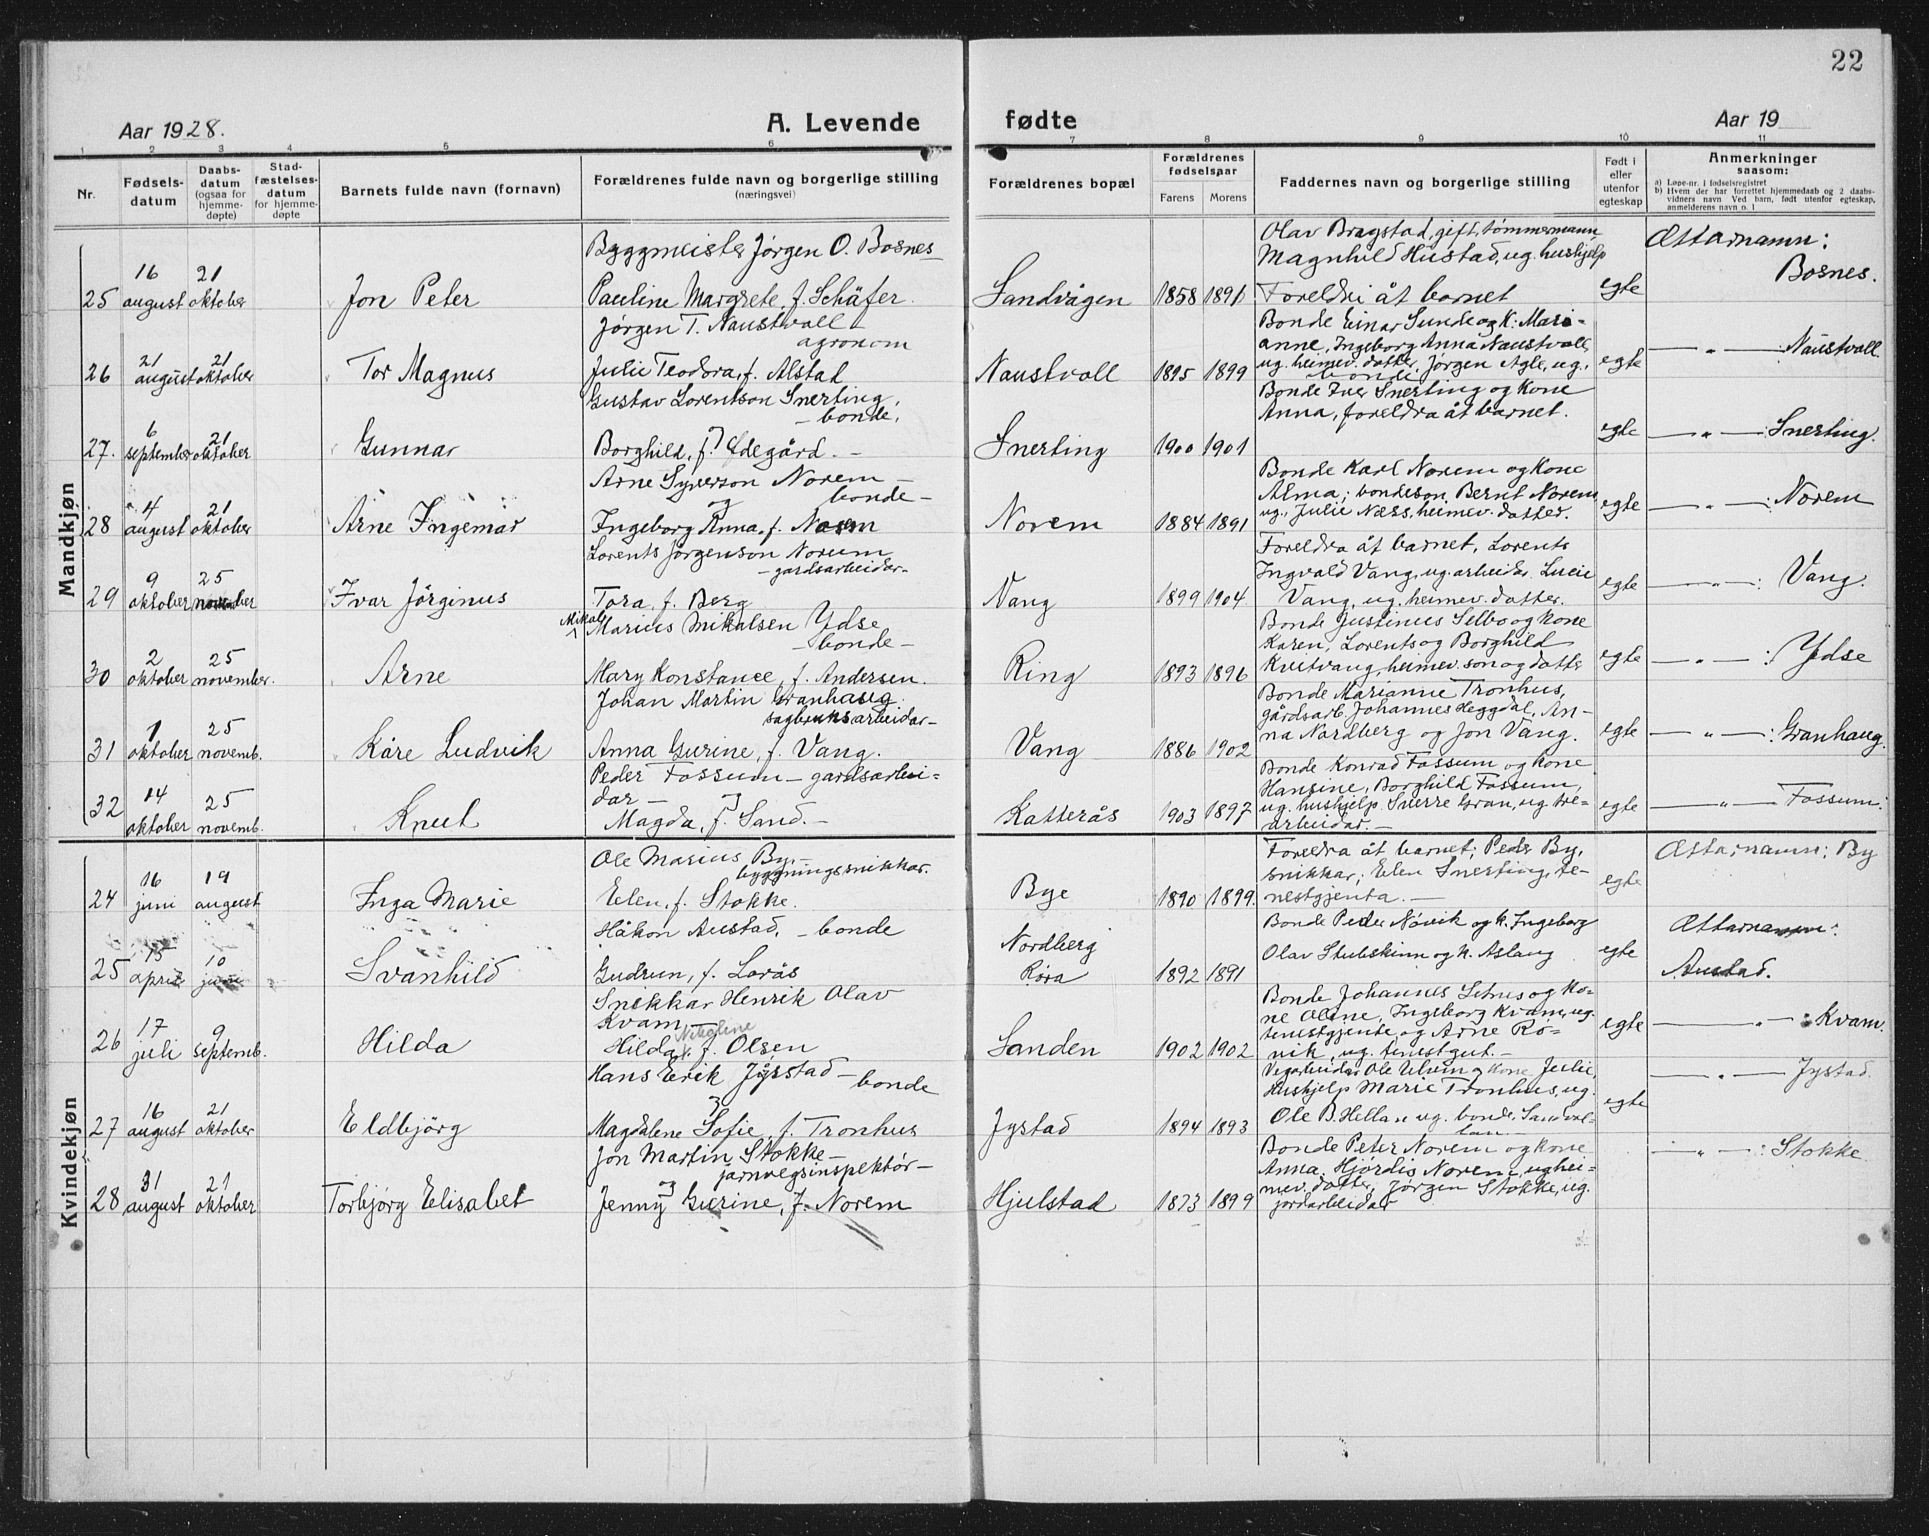 22
Aar 1928. A. Levende fødte Aar 19
1 2 3 4 5 6 7 8 9 10 11
Nr.
Fødsels-
datum
Daabs-
datum
(ogsaa for
hjemme-
døpte)
Stad-
fæstelses-
datum
for hjemme-
døpte
Barnets fulde navn (fornavn)
Forældrenes fulde navn og borgerlige stilling
(næringsvei)
Forældrenes bopæl
Forældrenes
fødselspar
Farens Morens
Faddernes navn og borgerlige stilling
Født i
eller
utenfor
egteskap
Anmerkninger
saasom:
a) Løpe-nr. i fødselsregistret
b) Hvem der har forrettet hjemmedaab og 2 daabs-
vidners navn Ved barn, født utenfor egteskap,
anmelderens navn o. l
Mandkjøn
25
16
august
21
oktober
Jon Peter
Byggmeister Jørgen O. Bosnes
Pauline Margrete, f. Schäfer
Sandvågen
1858 1891
Olav Bragstad, gift, tømmermann
Magnhild Hustad, ug. hushjelp
Foreldri åt barnet
egte
Ættarnamn:
Bosnes.
26
21
august
21
oktober
Tor Magnus
Jørgen T. Naustvoll
agronom
Julie Teodora, f. Alstad
Naustvoll
1895 1899
Bonde Einar Sunde og k. Mari-
anne, Ingeborg Anna Naustvoll,
ug. heimev. dotter, Jørgen Agle, ug.
bonde
egte
— „ — : Naustvoll
27.
6
september
21
oktober
Gunnar
Gustav Lorentson Snerting,
— bonde,
Borghild, f. Ødegård. —
Snerting
1900 1901
Bonde Iver Snerting og kone
Anna, foreldra åt barnet.
egte
— „ — : Snerting.
28
4
august
21
oktober
Arne Ingemar
Arne Syverson Norem —
og bonde —
Ingeborg Anna, f. Næss
Norem
1884 1891
Bonde Karl Norem og kone
Alma; bondeson Bernt Norem
ug., Julie Næss, heimev. dotter.
egte
— „ — : Norem
29
9
oktober
25
november
Ivar Jørginus
Lorents Jørgenson Norum
— gardsarbeidar —
Tora, f. Berg
Vang
1899 1904
Foreldra åt barnet, Lorents
Ingvald Vang, ug. arbeider. Lucie
Vang, ug. heimev. dotter.
egte
— „ — : Vang.
30
2
oktober
25
november.
Arne
Mikal
Marius Mikalsen Ydse
— bonde —
Mary Konstance, f. Andersen.
Ring
1893 1896
Bonde Justinus Selbo og kone
Karen, Lorents og Borghild
Kvitvang, heimev. son og dotter
egte
— „ — : Ydse
31
1
oktober
25
novemb.
Kåre Ludvik
Johan Martin Granhaug
sagbruksarbeidar —
Anna Gurine, f. Vang.
Vang
1886 1902
Bonde Marianne Tronhus,
gårdsarb. Johannes Heggdal, An-
na Nordberg og Jon Vang.
egte
— „ — : Granhaug.
32
14
oktober
25
novemb.
Knut
Peder Fossum — gardsarbei-
dar —
Magda, f. Sand. —
Katterås
1903 1897
Bonde Konrad Fossum og kone
Hansine, Borghild Fossum,
ug. hushjelp. Sverre Gran, ug. tre-
arbeidar. —
egte
— „ — Fossum.
Kvindekjøn
24
16
juni
19
august
Inga Marie
Ole Marius By. —
byggningssnikkar.
Elen, f. Stokke.
Bye
1890 1899
Foreldra åt barnet; Peder By,
snikkar; Elen Snerting, te-
nestgjenta. —
egte
Ættarnamn: By
25
15
april
10
juni
Svanhild
Håkon Austad, — bonde
Gudrun, f. Lorås
Nordberg
Røra
1892 1891
Bonde Peder Nøvik og k. Ingeborg
Olav Stubskinn og k. Aslaug
egte
Ættarnamn:
Austad.
26
17
juli
9
septemb.
Hilda
Snikkar Henrik Olav
Kvam —
Nikoline
Hilda, f. Olsen
Sanden
1902 1902
Bonde Johannes Setnes og ko-
ne Oline, Ingeborg Kvam, ug.
tenestgjente, og Arne Rø-
vik, ug. tenestgut. —
egte
— „ — : Kvam.
27
16
august
21
oktober
Eldbjørg
Hans Erik Jystad — bonde
Magdalene Sofie, f. Tronhus
Jystad
1894 1893
Vegarbeidar Ole Ulvin og kone Julie,
Hushjelp Marie Tronhus, ug.
Ole B. Hellan ug. bonde,
egte
— „ — Jystad
28
31
august
21
oktober
Torbjørg Elisabet
Jon Martin Stokke —
jarnvegsinspektør —
Jenny Gurine, f. Norem
Hjulstad
1873 1899
Bonde Peter Norem og kone
Anna. Hjørdis Norem, ug. hei-
mev. dotter, Jørgen Stokke, ug.
jordarbeidar
— „ — : Stokke